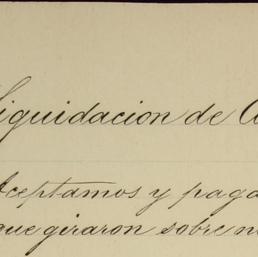 Liquidacion de
Aceptamos y paga
que giraron sobre n